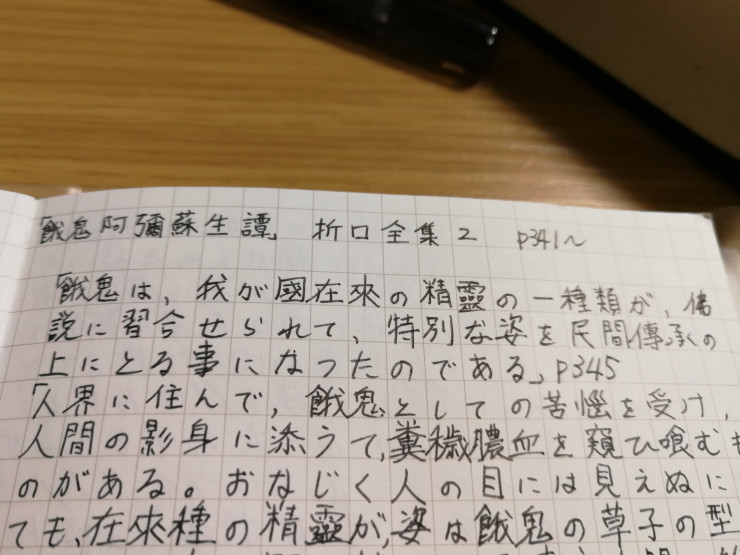 「餓鬼阿彌蘇生譚」 折口全集2 p341〜
「餓鬼は、我が國在來の精靈の一種類が、佛
説に習合せられて、特別な姿を民間傳承の
上にとる事になつたのである」p345
「人界に住んで、餓鬼としての苦惱を受け、
人間の影身に添うて、糞穢膿血を窺ひ喰むも
のがある。おなじく人の目には見えぬに
ても、在來種の精靈が、姿は餓鬼の草子の型